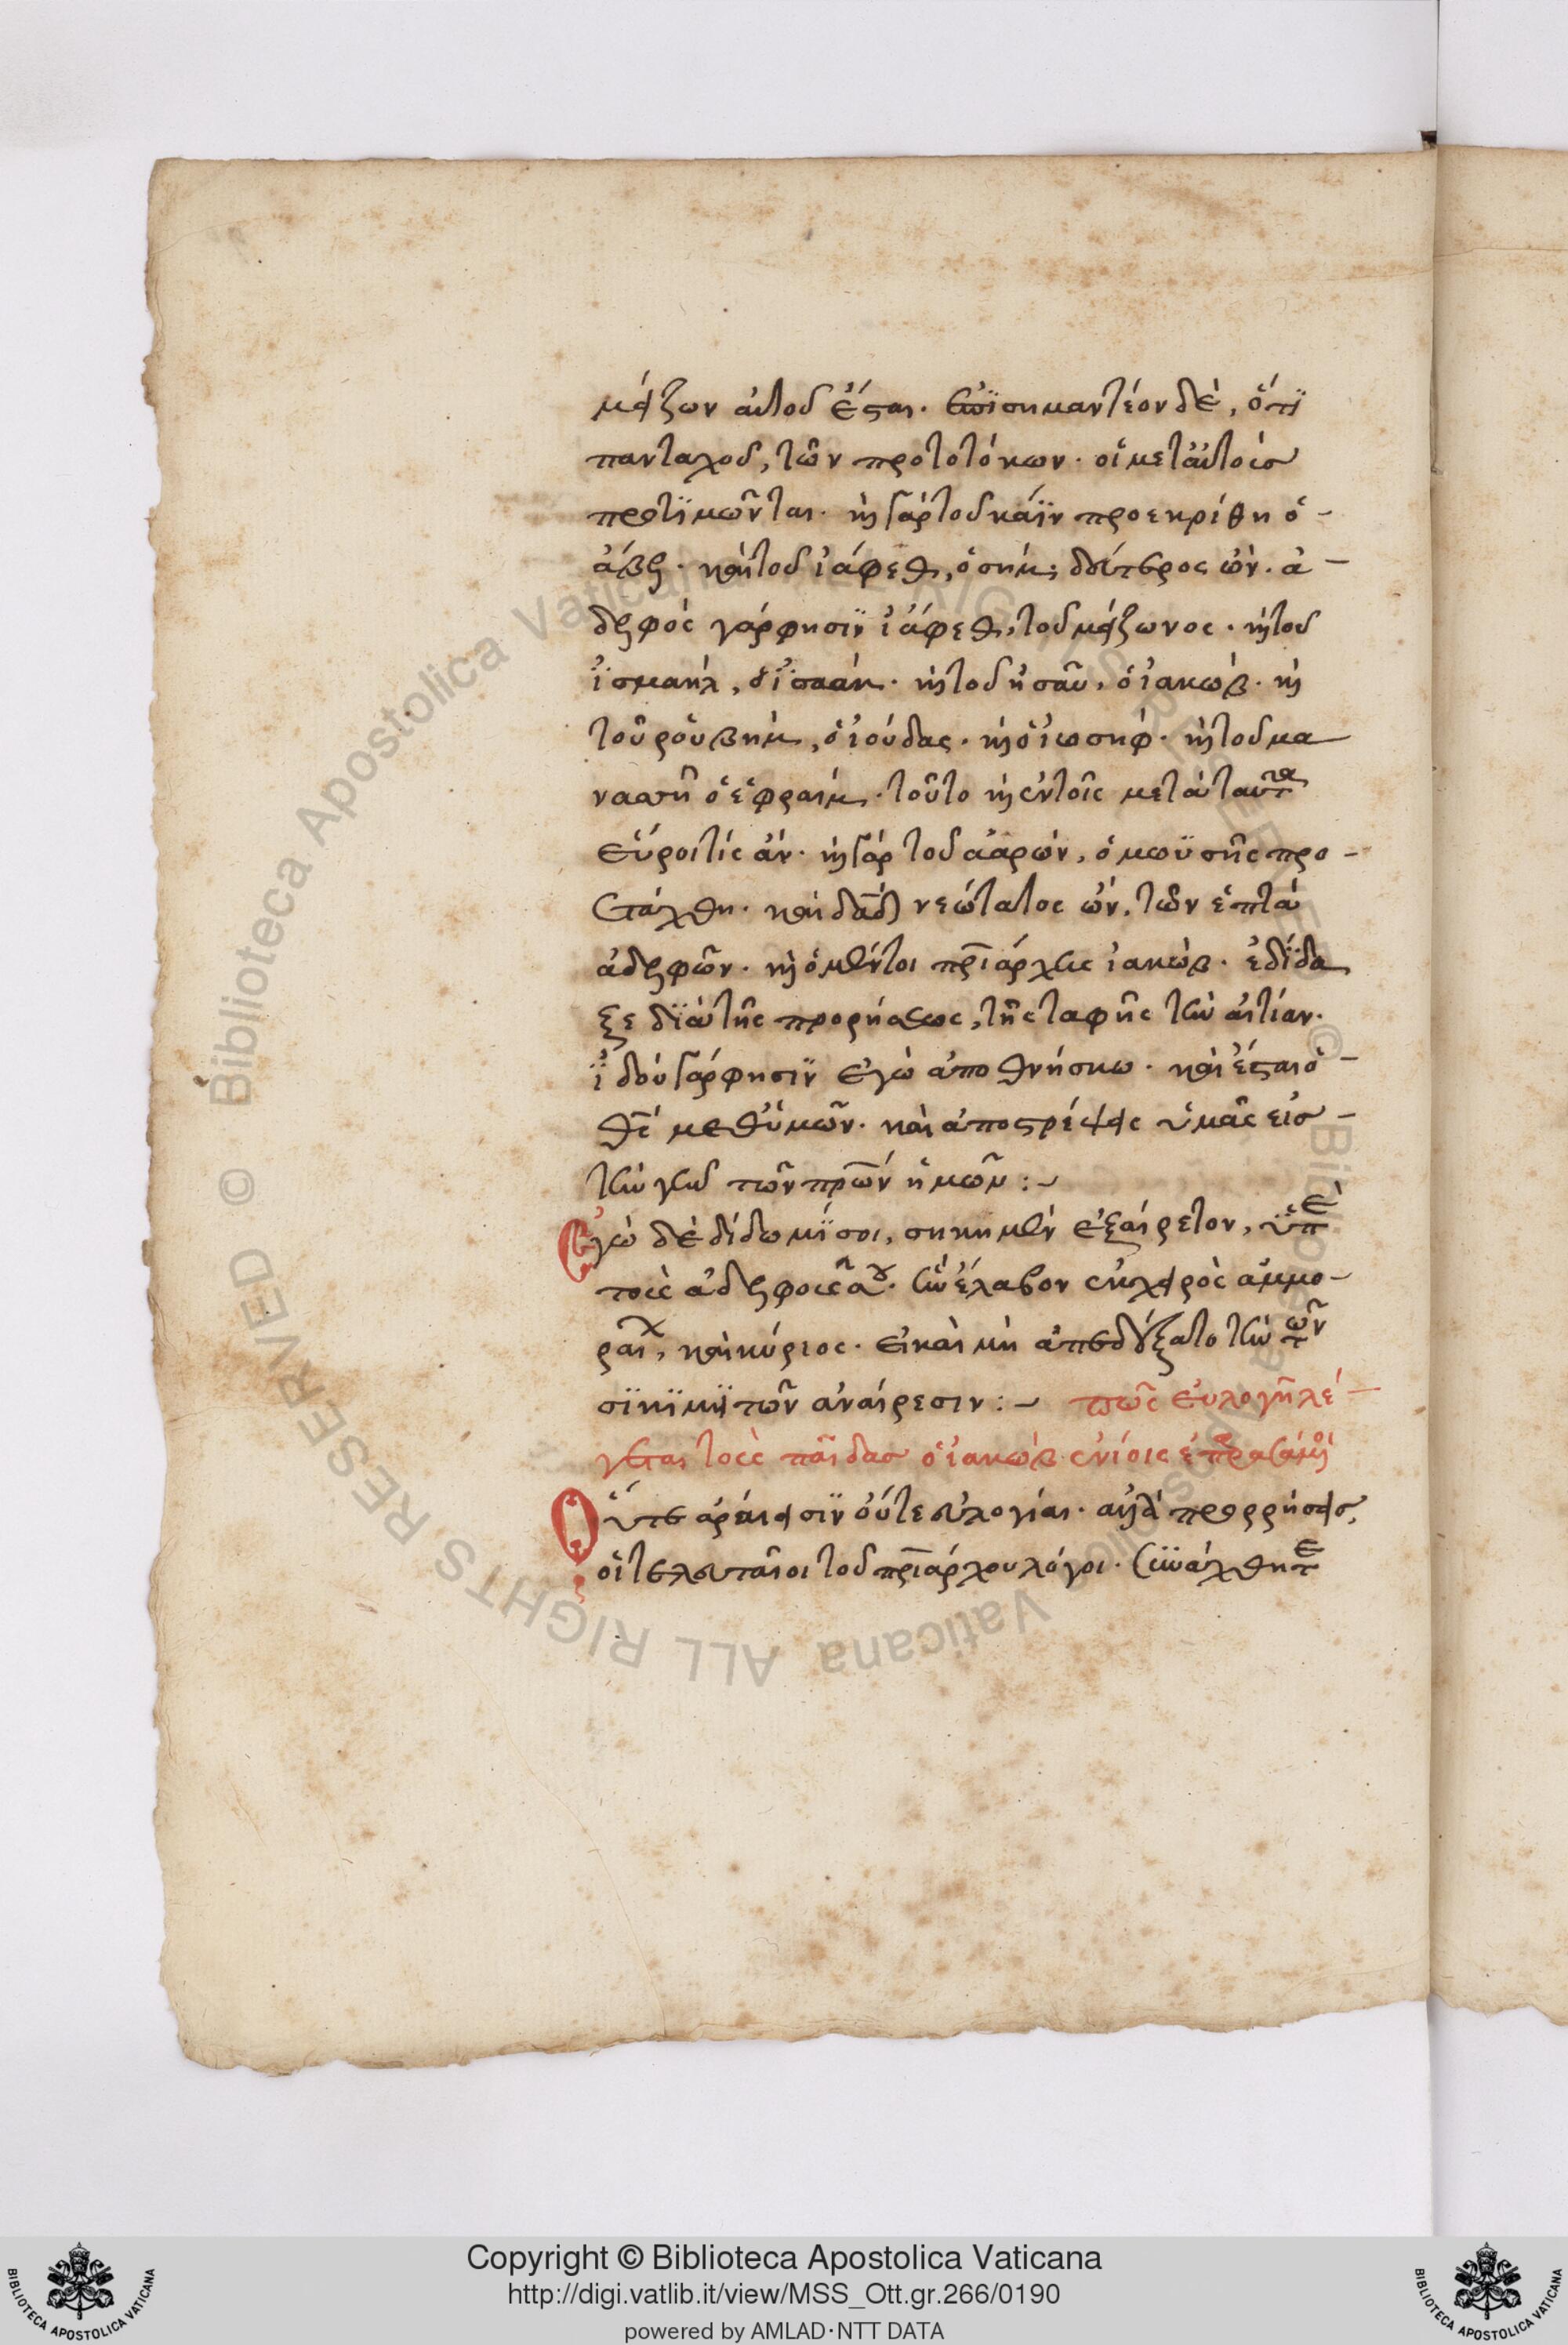 μείζων αὐτοῦ ἔσται. ἐπισημαντέον δὲ, ὅτι
πανταχοῦ, τῶν προτοτόκων. οἱ μετ' αὐτοὺσ
προτιμῶνται. καὶ γὰρ τοῦ κάϊν προεκρίθη ὁ -
ἄβελ. καὶ τοῦ ἰάφεθ, ὁ σὴμ, δεύτερος ὢν. ἀ -
δελφὸς γάρ φησιν ἰάφεθ, τοῦ μείζωνος. καὶ τοῦ
ἰσμαὴλ, ὁ ἰσαὰκ. καὶ τοῦ ἠσαῦ, ὁ ἰακώβ. καὶ
τοῦ ῥουβὴμ, ὁ ἰούδας. καὶ ὁ ἰωσήφ. καὶ τοῦ μα
νασσῆ ὁ ἐφραὶμ. τοῦτο καὶ ἐν τοῖς μετὰ ταῦτα
εὕροι τίς ἄν. καὶ γὰρ τοῦ ἀαρὼν, ὁ μωϋσῆς προ -
ετάχθη. καὶ δαδ νεώτατος ὢν, τῶν ἑπτὰ
ἀδελφῶν. καὶ ὁ μέντοι πριάρχης ἰακώβ. ἐδίδα
ξε διὰ τῆς προρήσεως, τῆς ταφῆς τὴν αἰτίαν.
ἰδοὺ γάρ φησιν ἐγὼ ἀποθνήσκω. καὶ ἔσται ὁ -
θς μεθ' ὑμῶν. καὶ ἀποστρέψει ὑμᾶς εἰσ -
τὴν γῆν τῶν πρων ἡμῶν :~
Ἐγὼ δὲ δίδωμί σοι, σηκημὲν ἐξαίρετον, ὑπὲ
τοὺς ἀδελφούς σου. ἣν ἔλαβον ἐκ χειρὸς ἀμμο -
ραι, καὶ κύριος. εἰ καὶ μὴ ἀπεδέξατο τὴν τῶν
σικιμιτῶν ἀναίρεσιν :~ πῶς εὐλογῆ λέ -
γεται τοὺς παῖδασ ὁ ἰακώβ
Οὔτε ἀραί εἰσιν οὔτε εὐλογίαι. ἀλλὰ προρρήσεισ,
οἱ τελευταῖοι τοῦ πριάρχου λόγοι.
Copyright © Biblioteca Apostolica Vaticana
http://digi.vatlib.it/view/MSS_Ott.gr.266/0190
powered by AMLAD·NTT DATA